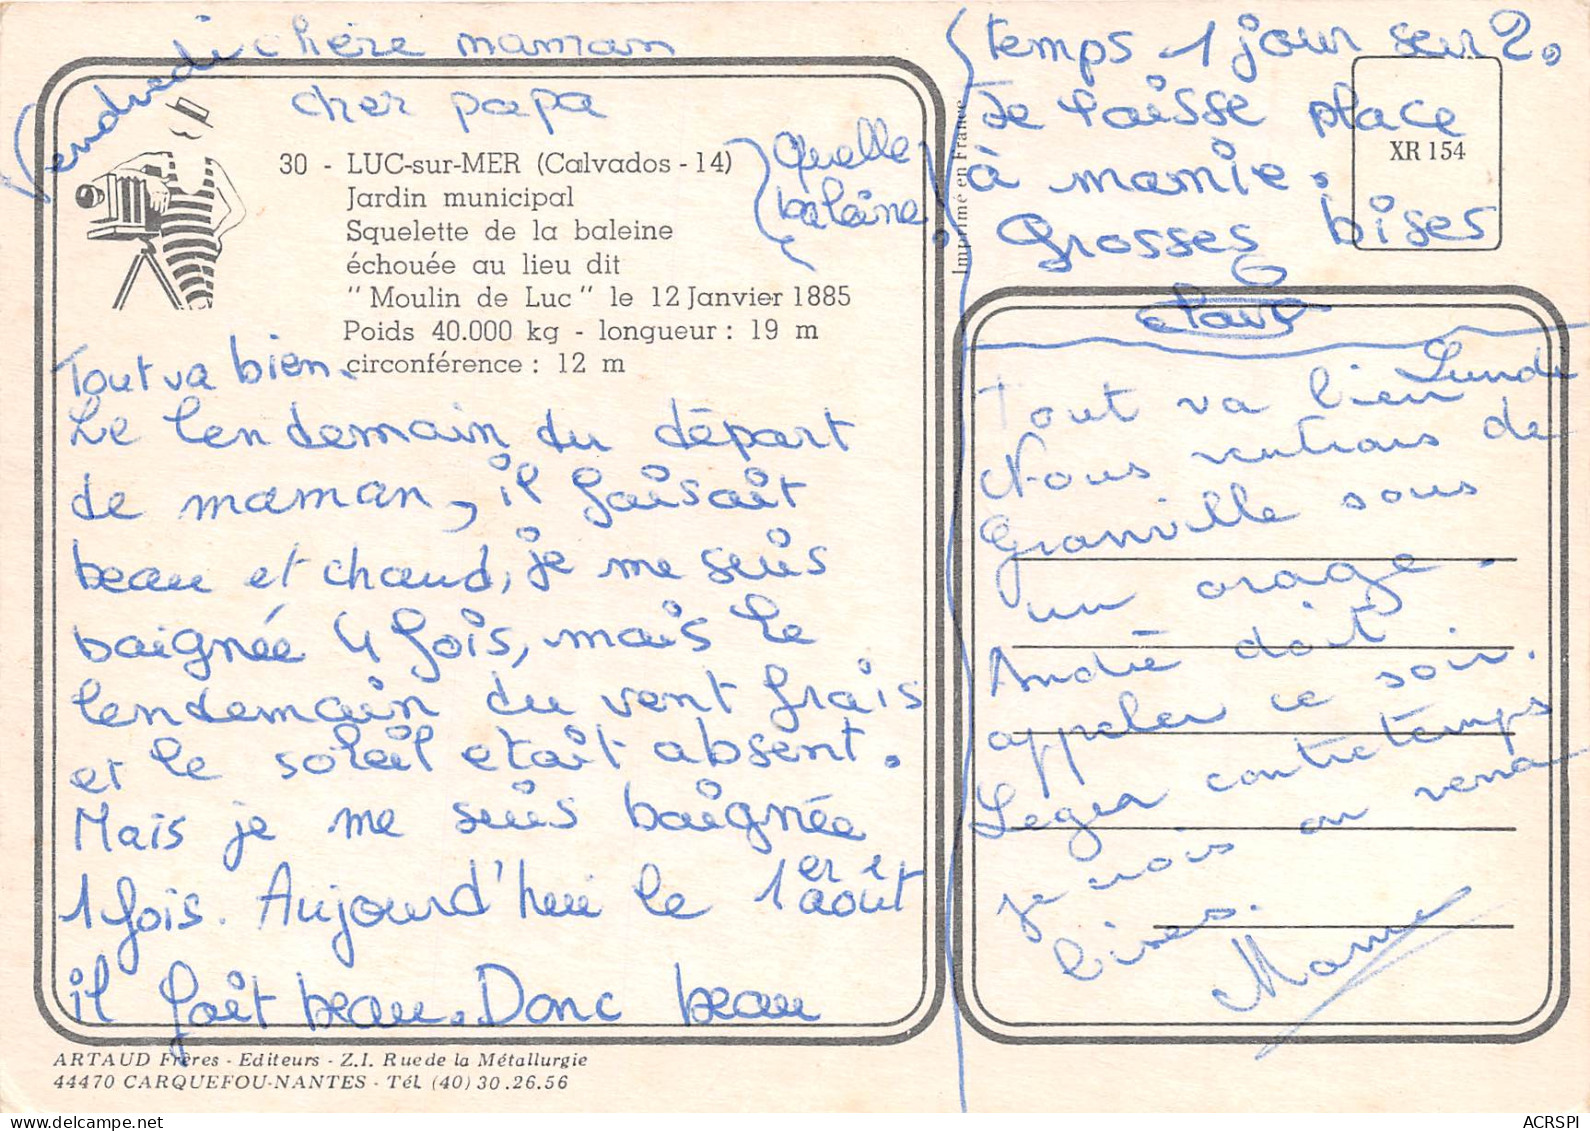 Vendredi
chère maman
cher papa
30 - LUC-sur-MER (Calvados - 14)
Jardin municipal
Squelette de la baleine
échouée au lieu dit
"Moulin de Luc" le 12 Janvier 1885
Poids 40.000 kg - longueur : 19 m
circonférence : 12 m
Quelle
baleine
Tout va bien.
Le lendemain du départ
de maman, il faisait
beau et chaud, je me suis
baignée 4 fois, mais le
lendemain du vent frais
et le soleil etait absent.
Mais je me suis baignée
1 fois. Aujourd'hui le 1er
août
il fait beau. Donc beau
temps 1 jour sur 2.
Je laisse place
à mamie.
Grosses bises
Imprimé en France
XR 154
Lundi
Tout va bien
Nous rentrons de
Granville sous
un orage.
André doit
appeler ce soir.
Leger contretemps
je crois on verra
bises.
Mamie
ARTAUD Frères - Editeurs - Z.I. Rue de la Métallurgie
44470 CARQUEFOU-NANTES - Tél. (40) 30.26.56
ACRSPI